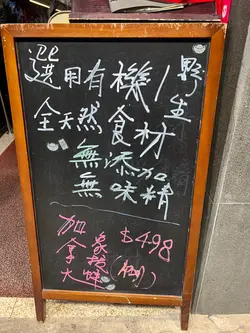 選用有機/野生
全天然食材
無添加
無味精
加拿大
象拔蚌
$498